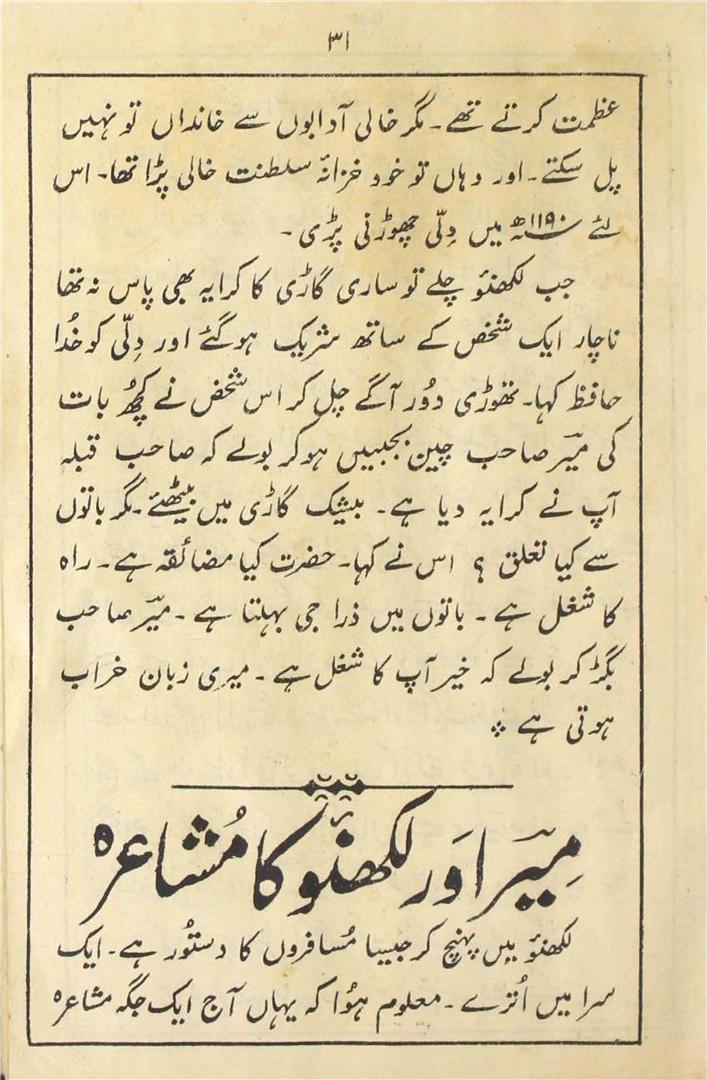 ۳۱
عظمت کرتے تھے۔ مگر خالی آدابوں سے خانداں تو نہیں
پل سکتے۔ اور وہاں تو خود خزانۂ سلطنت خالی پڑا تھا۔ اس
لئے ۱۱۹۰ھ میں دِلّی چھوڑنی پڑی۔
جب لکھنئو چلے تو ساری گاڑی کا کرایہ بھی پاس نہ تھا
ناچار ایک شخص کے ساتھ شریک ہو گئے اور دِلّی کو خُدا
حافظ کہا۔ تھوڑی دُور آگے چل کر اس شخص نے کچھُ بات
کی میرؔ صاحب چین بجبیں ہو کر بولے کہ صاحب قبلہ
آپ نے کرایہ دیا ہے۔ بیشک گاڑی میں بیٹھئے۔ مگر باتوں
سے کیا تعلق ؟ اس نے کہا۔ حضرت کیا مضائقہ ہے۔ راہ
کا شغل ہے۔ باتوں میں ذرا جی بہلتا ہے۔ میرؔ صاحب
بگڑ کر بولے کہ خیر آپ کا شغل ہے۔ میری زبان خراب
ہوتی ہے ؞
مِیرؔ اَور لکھنئو کا مُشاعرہ
لکھنئو میں پہنچ کر جیسا مُسافروں کا دستُور ہے۔ ایک
سرا میں اُترے۔ معلوم ہُوا کہ یہاں آج ایک جگہ مشاعرہ